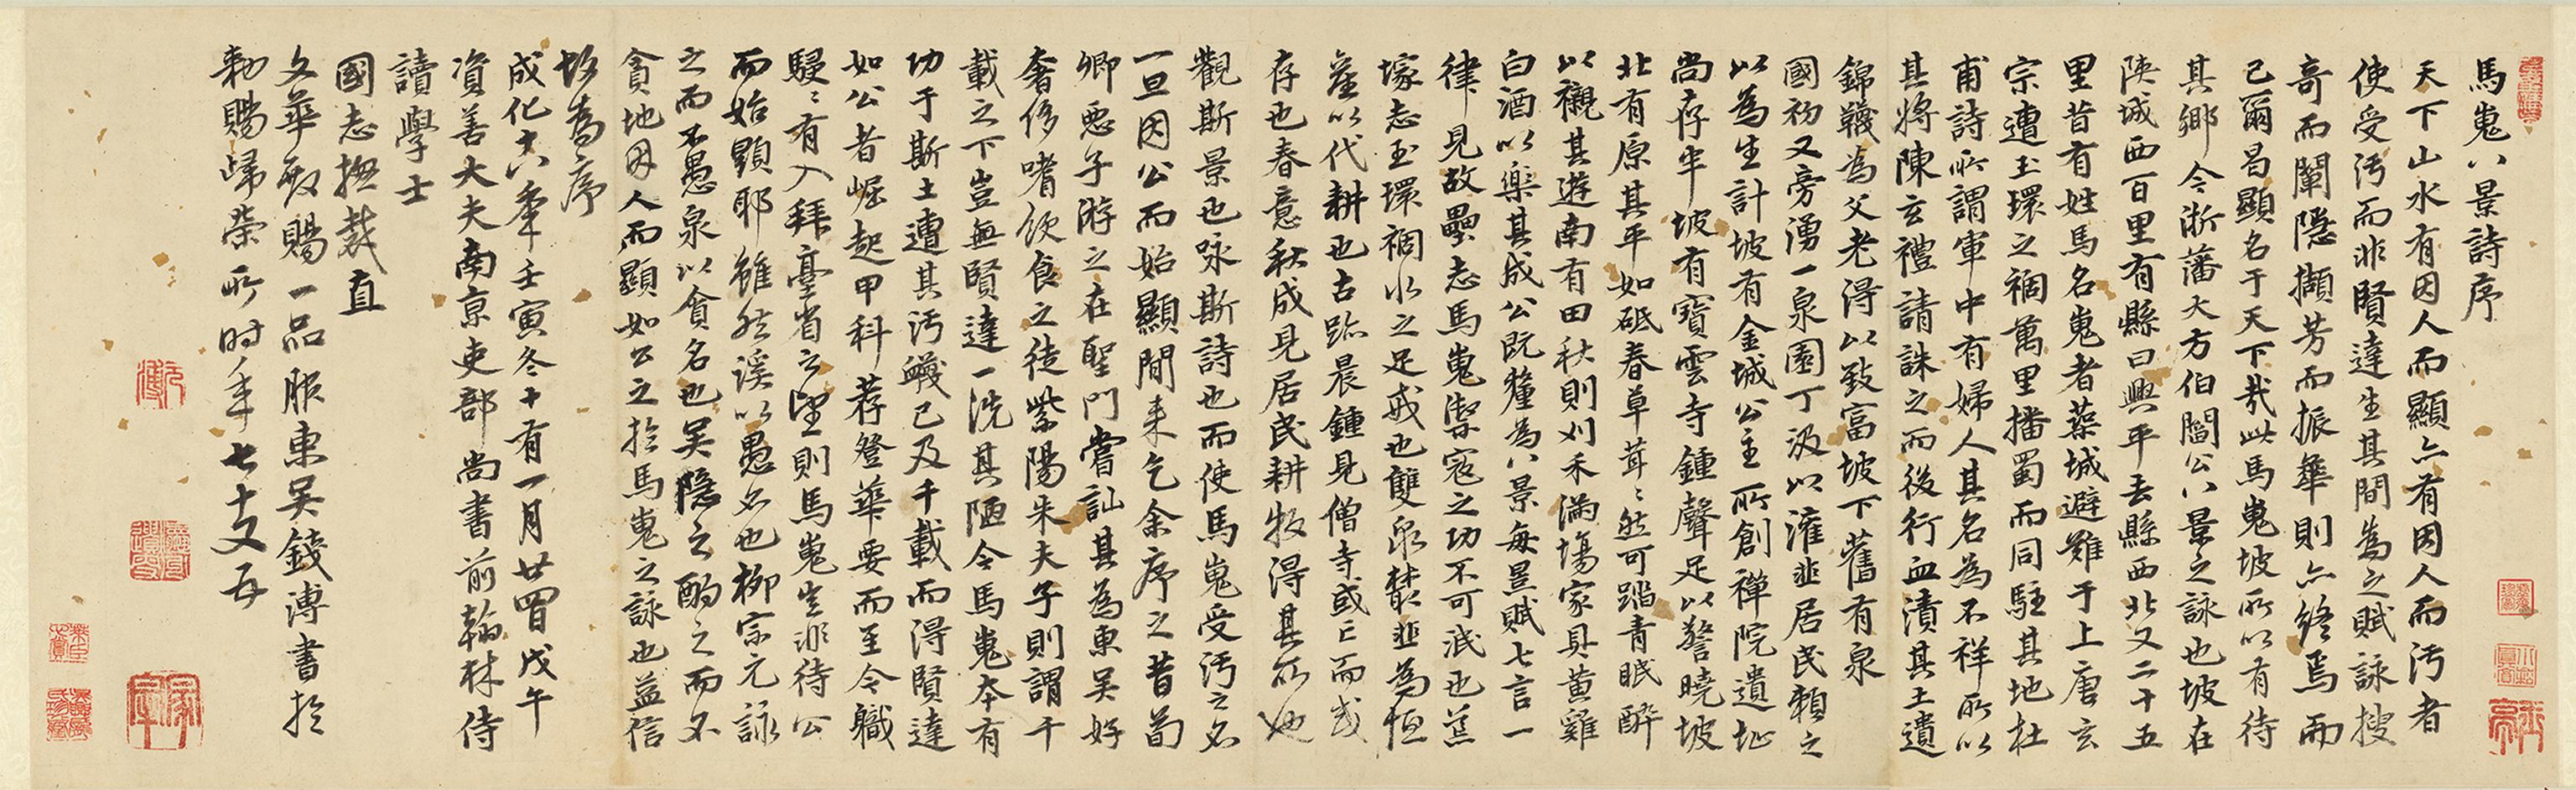 馬嵬八景詩序
天下山水有因人而顯亦有因人而汚者
使受汚而非賢達生其間為之賦詠搜
奇而闡隱擷芳而振華則亦終焉而
已爾曷顯名于天下哉此馬嵬坡所以有待
其鄉今浙藩大方伯閻公八景之詠也坡在
陝城西百里有縣曰興平去縣西北又二十五
里昔有姓馬名嵬者築城避難于上唐玄
宗遭玉環之禍萬里播蜀而同駐其地杜
甫詩所謂軍中有婦人其名為不祥所以
其將陳玄禮請誅之而後行血漬其土遺
錦韈為父老得以致富坡下舊有泉
國初又旁湧一泉園丁汲以灌韭居民賴之
以為生計坡有金城公主所創禪院遺址
尚存半坡有寶雲寺鍾聲足以警曉坡
北有原其平如砥春草茸〻然可踏青眠醉
以襯其遊南有田秋則刈禾滿塲家具黄雞
白酒以樂其成公既釐為八景每景賦七言一
律見故壘志馬嵬禦寇之功不可泯也蕉
塚志玉環禍水之足戒也雙泉藂韭為恒
產以代耕也古跡晨鍾見僧寺或亡而或
存也春意秋成見居民耕牧得其所也
觀斯景也咏斯詩也而使馬嵬受汚之名
一旦因公而始顯間来乞余序之昔荀
卿惡子游之在聖門嘗訕其為東吴好
奢侈嗜飲食之徒紫陽朱夫子則謂千
載之下豈無賢達一洗其陋今馬嵬本有
功于斯土遭其汚衊已及千載而得賢達
如公者崛起甲科荐登華要而至今職
駸〻有入拜臺省之望則馬嵬豈非待公
而始顯耶雖然溪以愚名也柳宗元詠
之而不愚泉以貪名也吴隱之酌之而不
貪地因人而顯如公之於馬嵬之詠也益信
故為序
成化十八年壬寅冬十有一月廿四日戊午
資善大夫南京吏部尚書前翰林侍
讀學士
國志摠裁直
文華殿賜一品服東吴錢溥書於
勑賜歸榮所時年七十又五